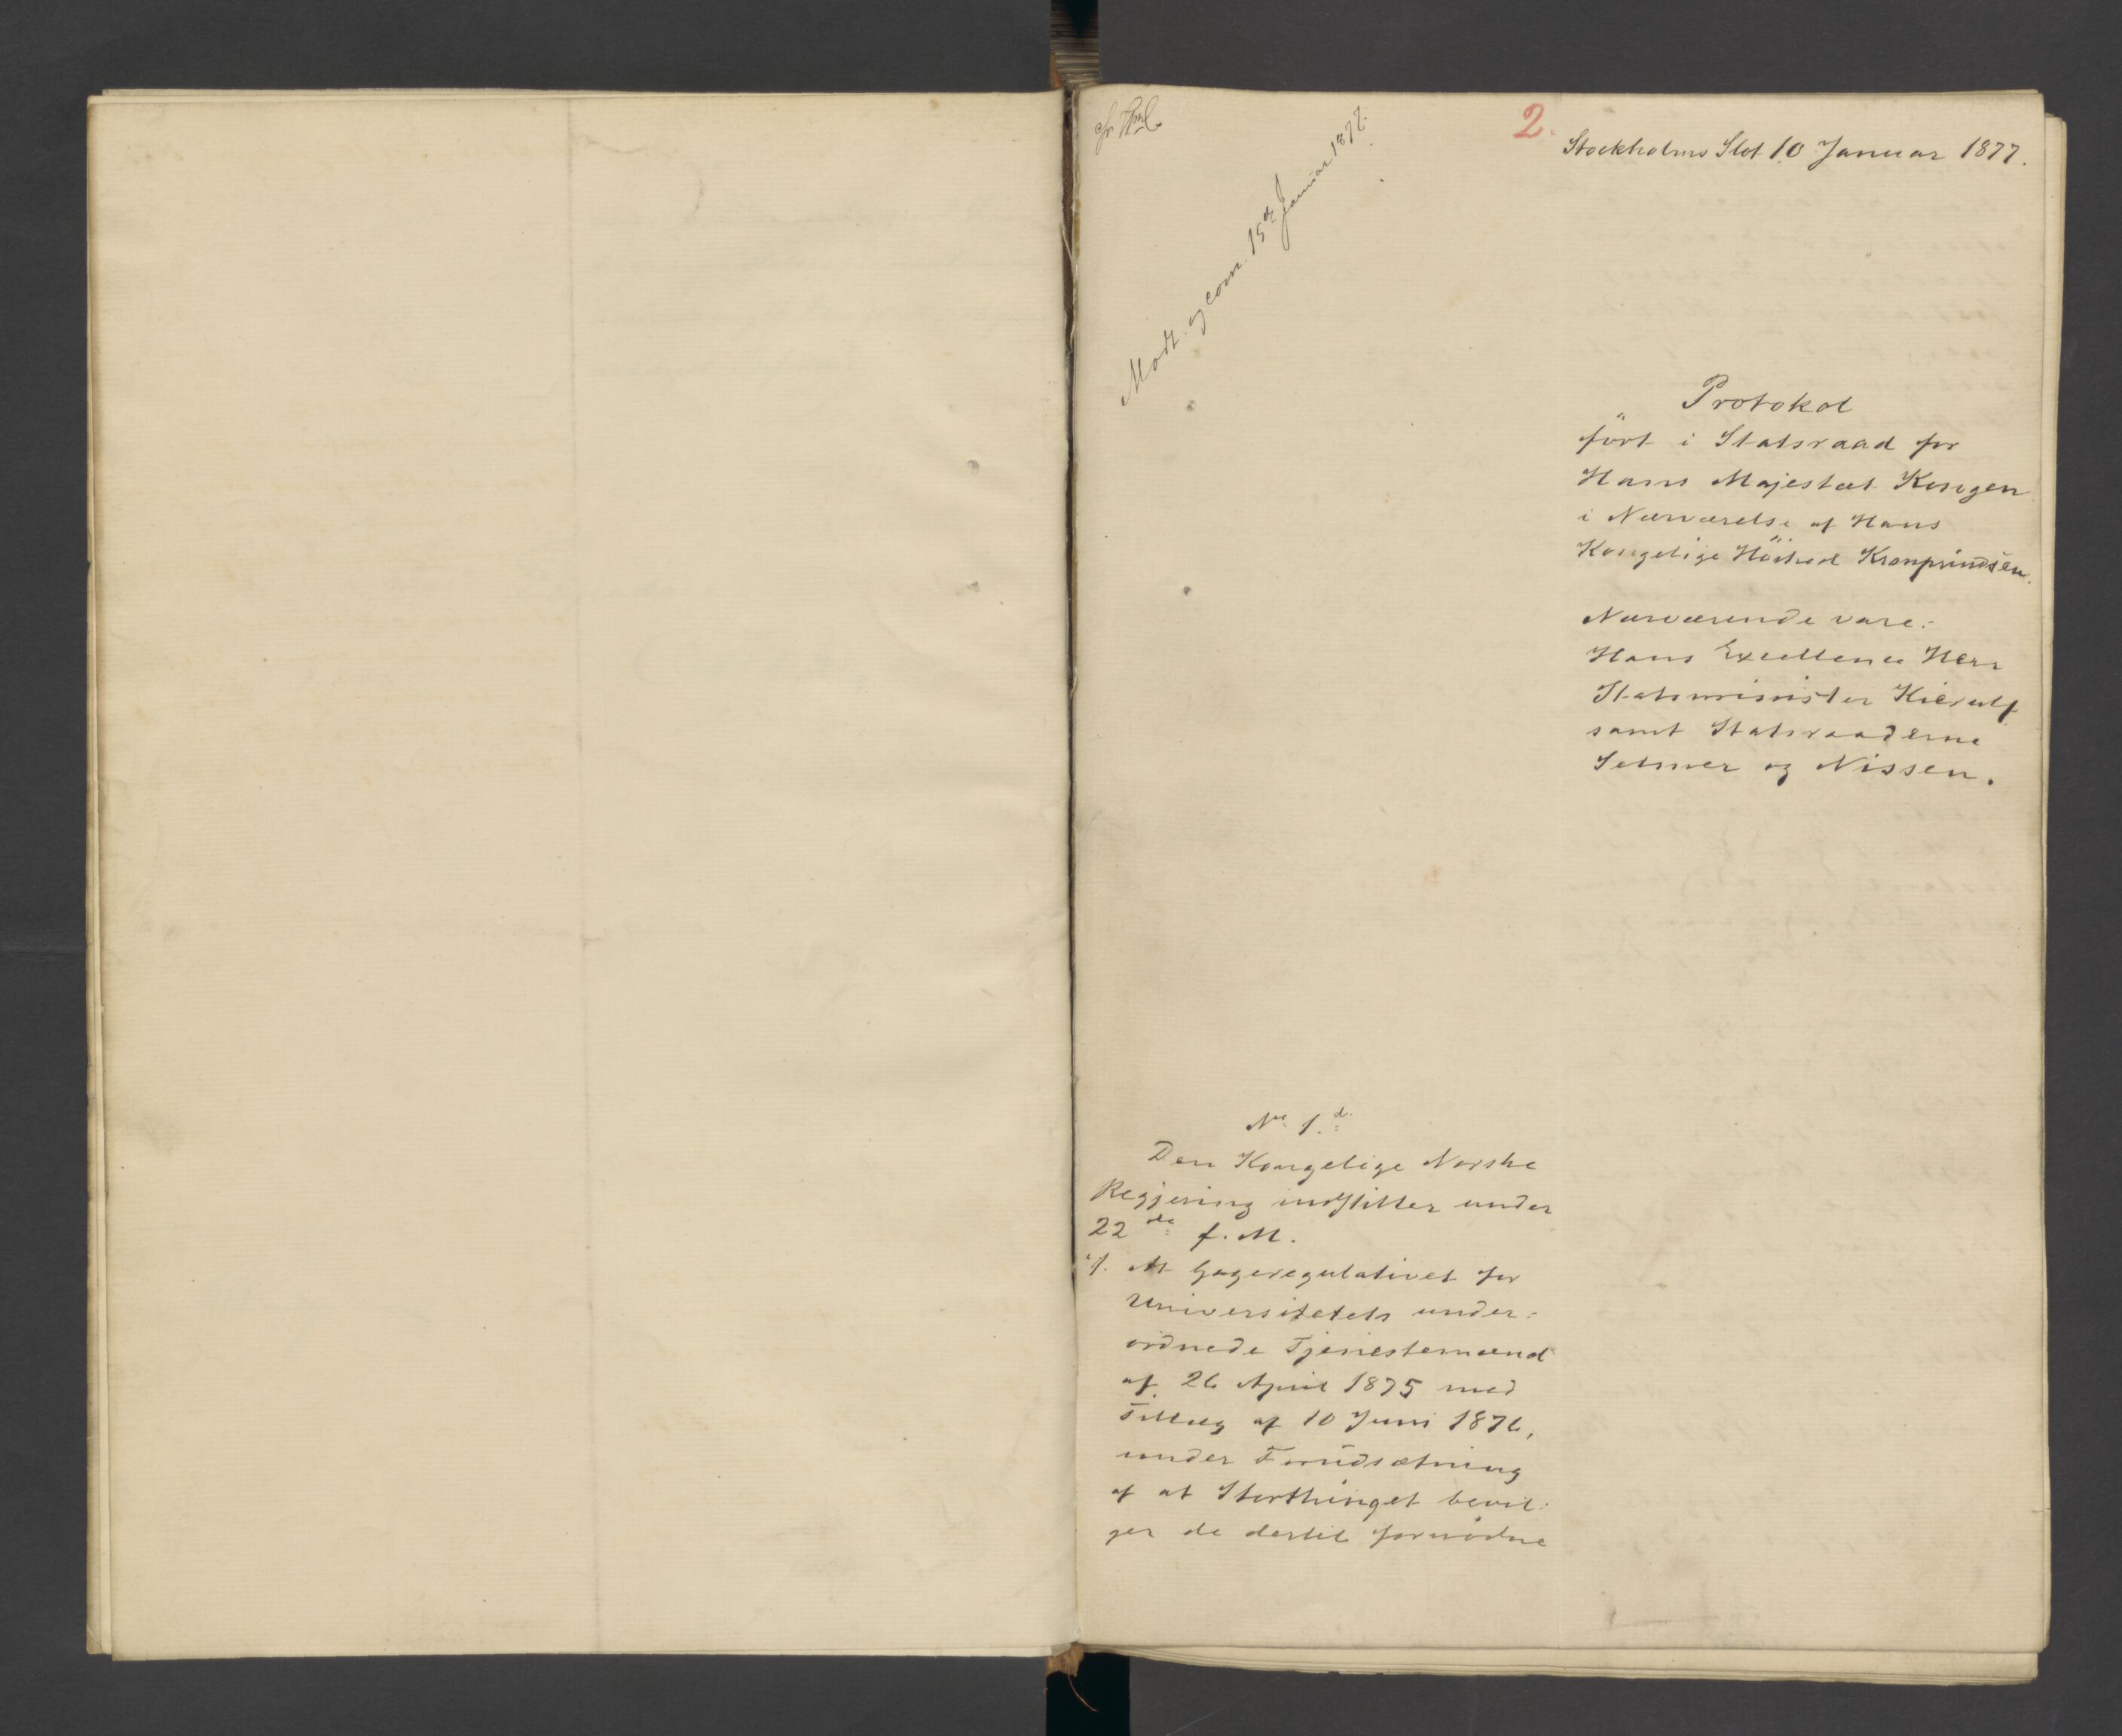 2.
Stockholms Slot 10 Januar 1877.
Modt. og com. 15de Januar 1877.
Protokol
fört i Statsraad for
Hans Majestæt Kongen
i Nærværelse af Hans
Kongelige Höihed Kronprindsen.
Nærværende vare:
Hans Excellence Herr
Statsminister Kierulf
samt Statsraaderne
Selmer og Nissen.
No 1.
Den Kongelige Norske
Regjering indstiller under
22de f. M.
"1. At Gageregulativet for
Universitetets under-
ordnede Tjenestemænd
af 26 April 1875 med
Tillæg af 10 Juni 1876,
under Forudsætning
af at Storthinget bevil-
ger de dertil fornødne